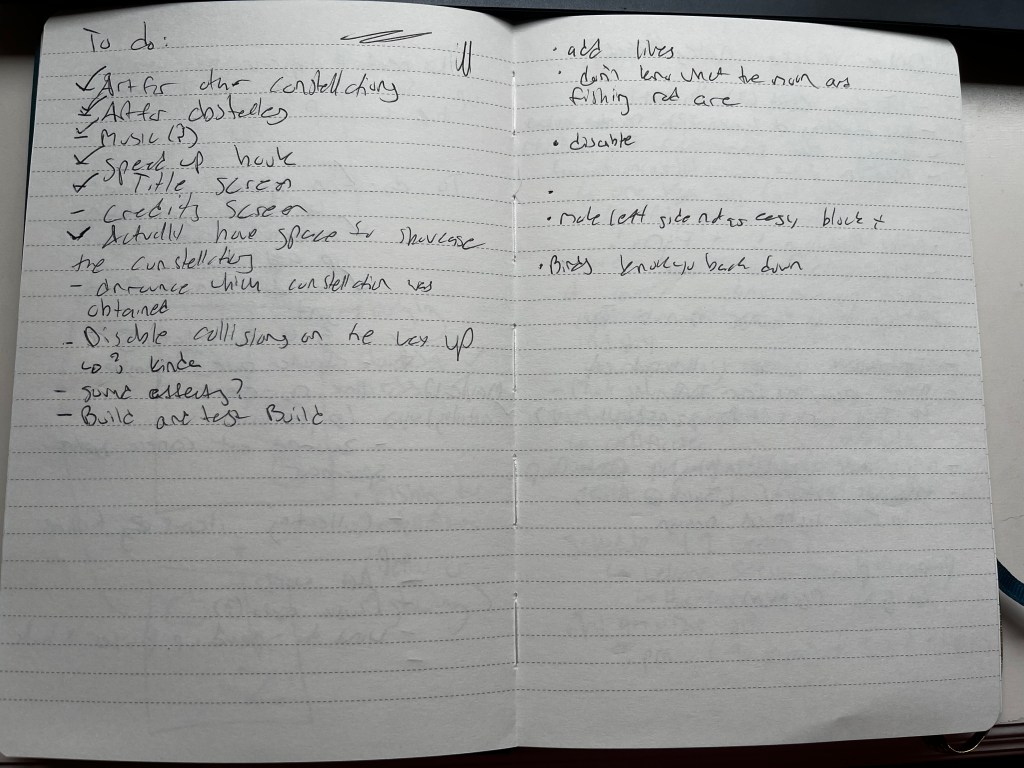 To do:
✓ Art for other constellations
✓ Art for obstacles
✓ Music (?)
✓ Speed up hook
✓ Title screen
- Credits screen
✓ Actually have space to showcase
the constellations
- announce which constellation was
obtained
- Disable collisions on the way up
kinda
- sound assets?
- Build and test Build
• add lives
• don't know what the moon and
fishing rod are
• disable
•
• make left side not as easy block
• Birds knock you back down